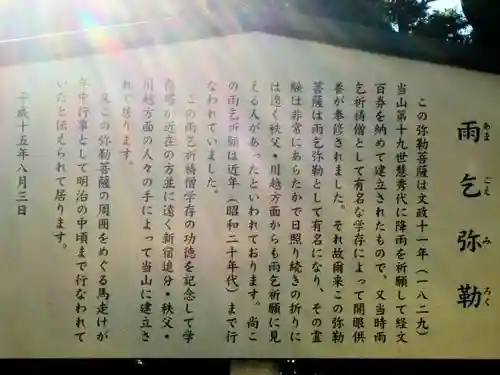 雨乞弥勒
あまごえみろく
この弥勒菩薩は文政十一年(一八二九)
当山第十九世慧秀代に降雨を祈願して経文
百巻を納めて建立されたもので、又当時雨
乞祈祷僧として有名な学存によって開眼供
養が奉修されました。それ故爾来この弥勒
菩薩は雨乞弥勒として有名になり、その霊
験は非常にあらたかで日照り続きの折りに
は遠く秩父・川越方面からも雨乞祈願に見
える人があったといわれております。尚こ
の雨乞祈願は近年(昭和二十年代)まで行
なわれていました。
この雨乞祈祷僧学存の功徳を記念して学
存塔が近在の方並に遠く新宿追分・秩父・
川越方面の人々の手によって当山に建立さ
れて居ります。
又この弥勒菩薩の周囲をめぐる馬走けが
年中行事として明治の中頃まで行なわれて
いたと伝えられて居ります。
平成十五年八月三日